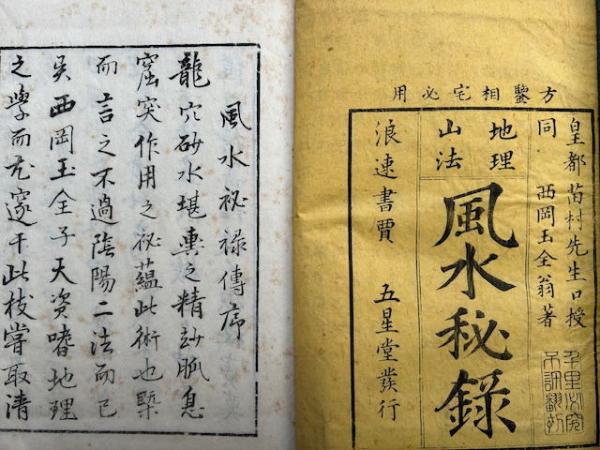 方鑒相宅必用
皇都 苗村先生口授
同 西岡玉全翁著
地理
山法
風水秘錄
浪速書賈 五星堂發行
千里必究
不許翻刻
風水祕禄傳序
龍穴砂水堪輿之精訬脈息
窟突作用之祕蘊此術也槩
而言之不過陰陽二法而已
矣西岡玉全子天資嗜地理
之學而尤邃于此枝嘗取清